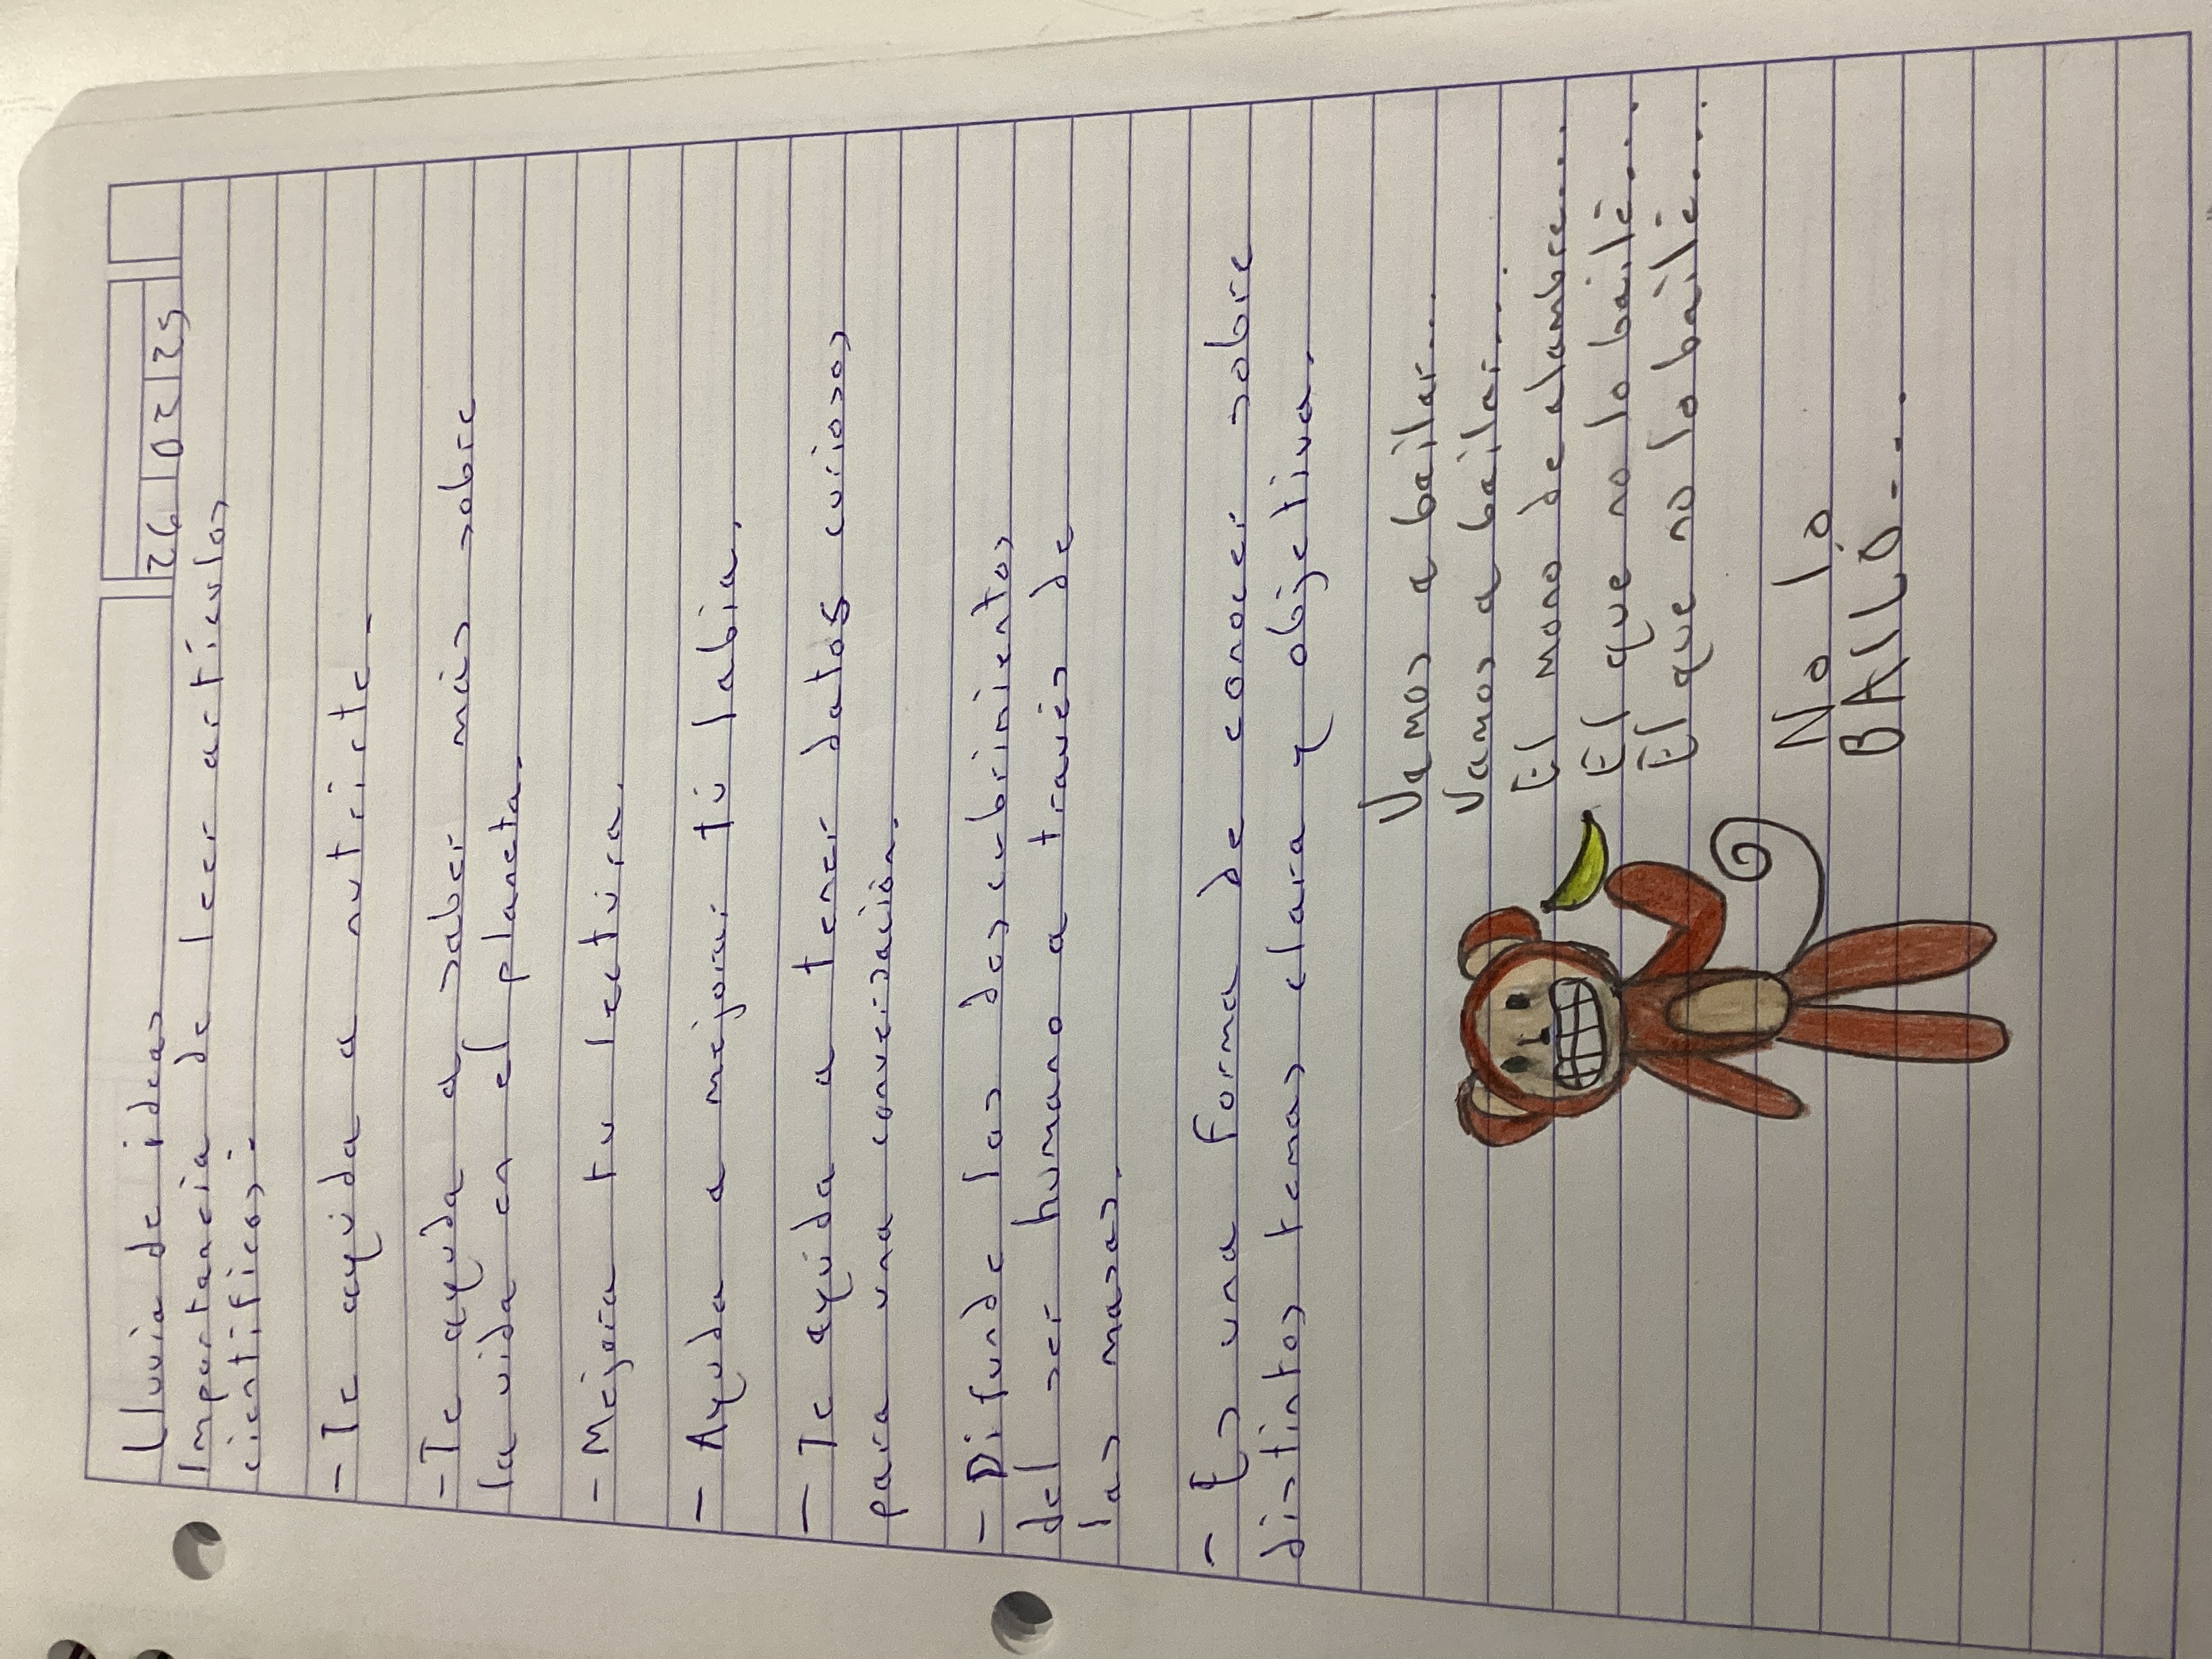 26 02 25
Lluvia de ideas
Importancia de leer artículos
científicos:
- Te ayuda a nutrirte.
- Te ayuda a saber más sobre
la vida en el planeta.
- Mejora tu lectura.
- Ayuda a mejorar tú labia.
- Te ayuda a tener datos curiosos
para una conversación.
- Difunde los descubrimientos
del ser humano a través de
las masas.
- Es una forma de conocer sobre
distintos temas clara y objetiva.
Vamos a bailar...
Vamos a bailar...
El mono de alambre....
El que no lo bailé...
El que no lo bailé...
No lo
BAILÓ...